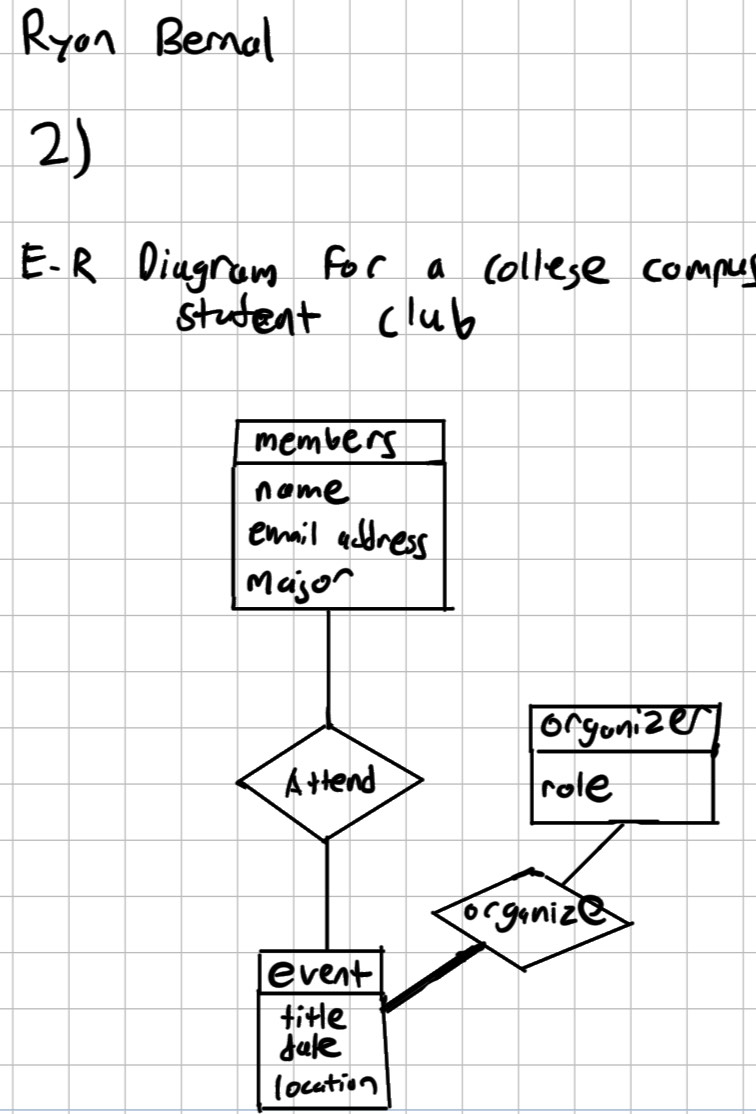 Ryon Bernal
2)
E-R Diagram for a college compus
student club
members
name
email address
Major
Attend
organizer
role
organize
event
title
date
location